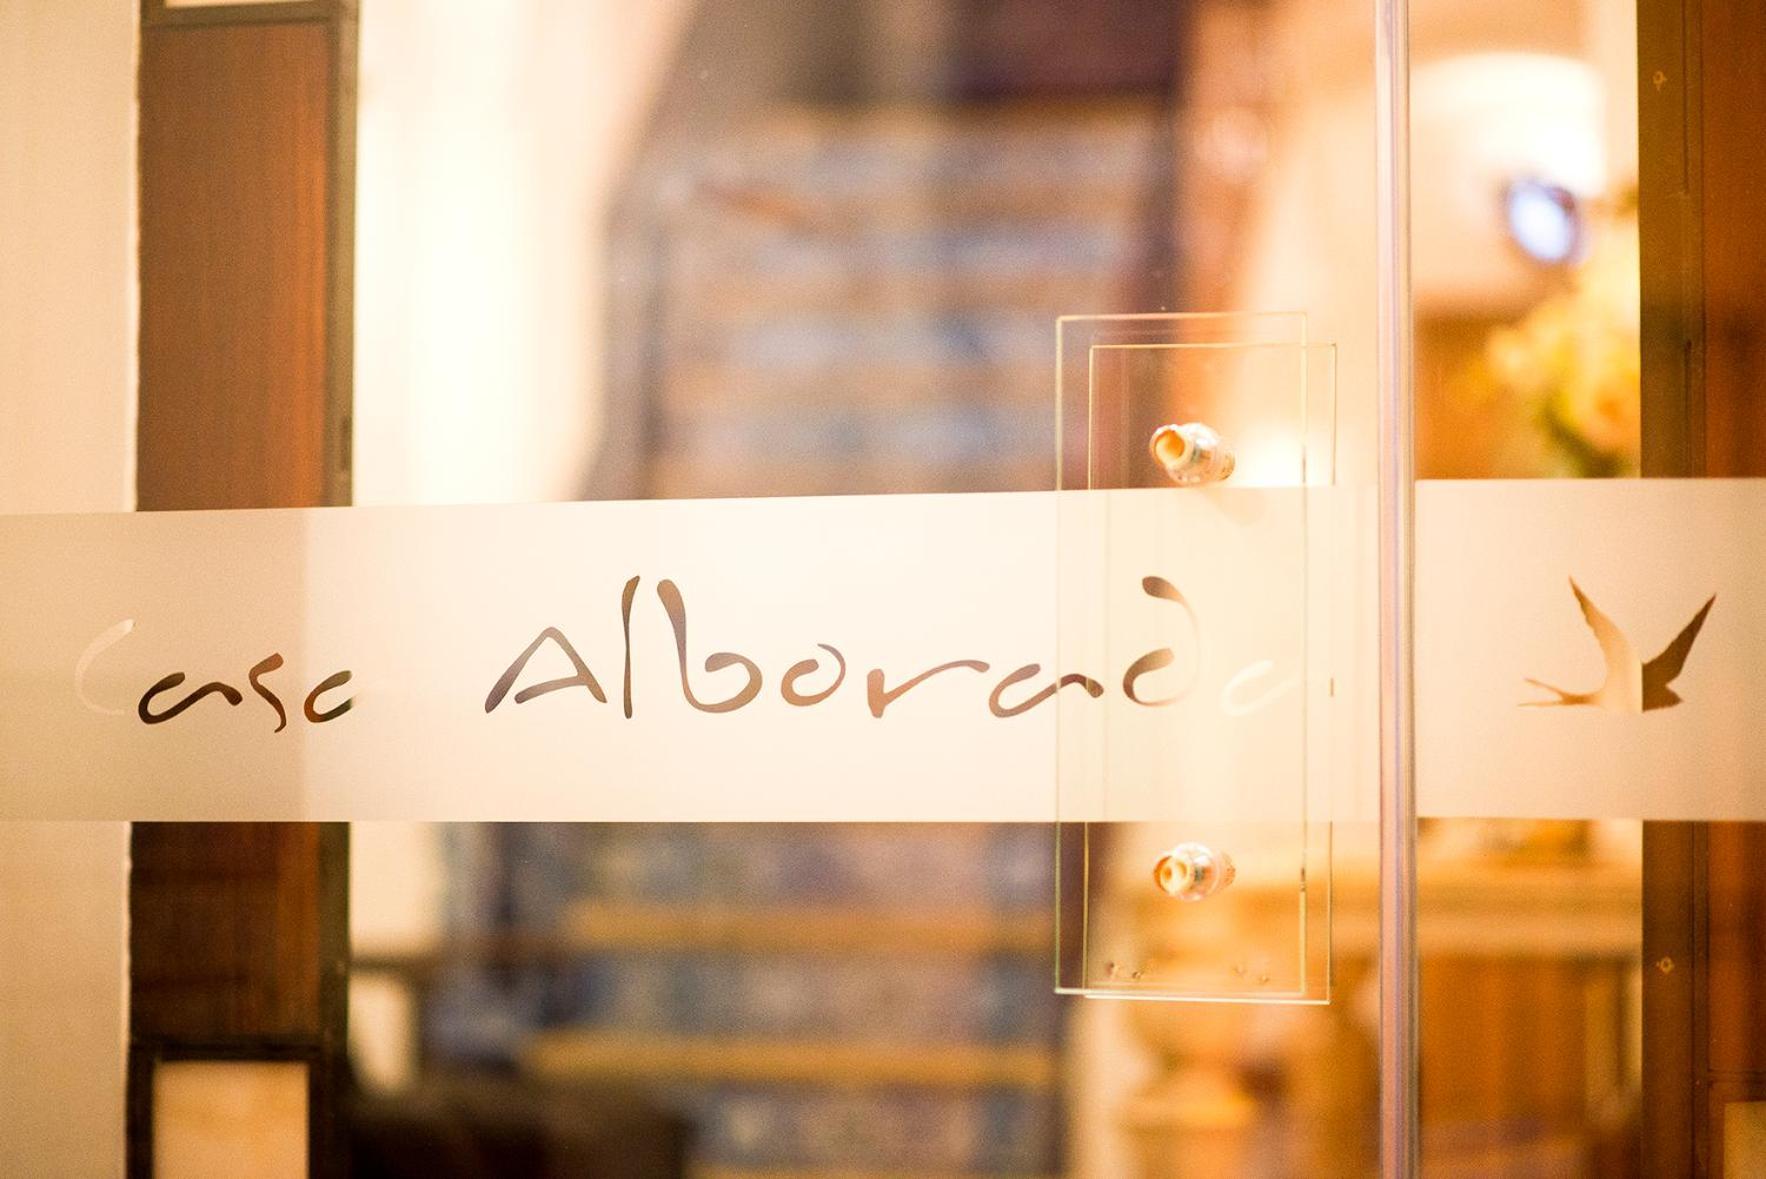 Casa Alborada